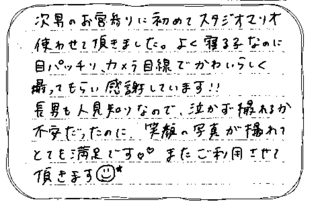 次男のお宮参りに初めてスタジオマリオ
使わせて頂きました。よく寝る子なのに
目パッチリ、カメラ目線でかわいらしく
撮ってもらい感謝しています!!
長男も人見知りなので、泣かず撮れるか
不安だったのに、笑顔の写真が撮れて
とても満足です♡♡ またご利用させて
頂きます☺*